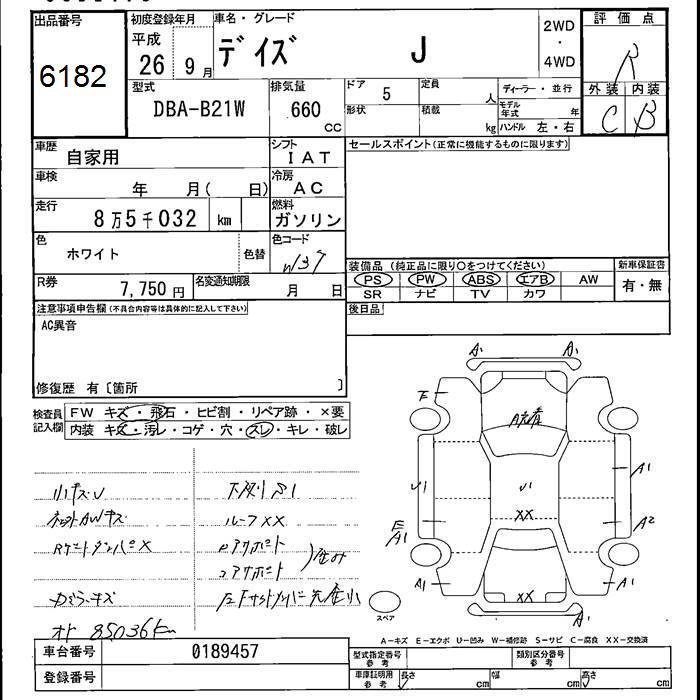 出品番号
6182
初度登録年月
平成
26 9月
車名・グレード
デイズ J
2WD
・
4WD
評価点
R
外装 内装
C B
型式
DBA-B21W
排気量
660
cc
ドア 5
定員 人
形状
積載 kg
ディーラー・並行
モデル年式 年
ハンドル 左・右
車歴
自家用
シフト
IAT
セールスポイント(正常に機能するものに限ります)
車検
年 月( 日)
冷房
AC
走行
8万5千032 km
燃料
ガソリン
色
ホワイト
色替
色コード
W37
装備品(純正品に限り○をつけてください)
PS PW ABS エアB AW
SR ナビ TV カワ
新車保証書
有・無
R券
7,750円
名変通知期限
月 日
後日品
注意事項申告欄(不具合内容等は具体的に記入して下さい)
AC異音
修復歴 有〔箇所 〕
検査員記入欄
FW キズ・飛石・ヒビ割・リペア跡・×要
内装 キズ・汚レ・コゲ・穴・スレ・キレ・破レ
小キズU
ルーフXX
オド 85036km
A1 A1
U1
U1
XX
A1
A2
E
A1
A1
XX
A1
A1
スペア
A-キズ E-エクボ U-凹み W-補修跡 S-サビ C-腐食 XX-交換済
車台番号
0189457
登録番号
型式指定番号
参考
類別区分番号
参考
車庫証明用
参考
長さ cm
幅 cm
高さ cm